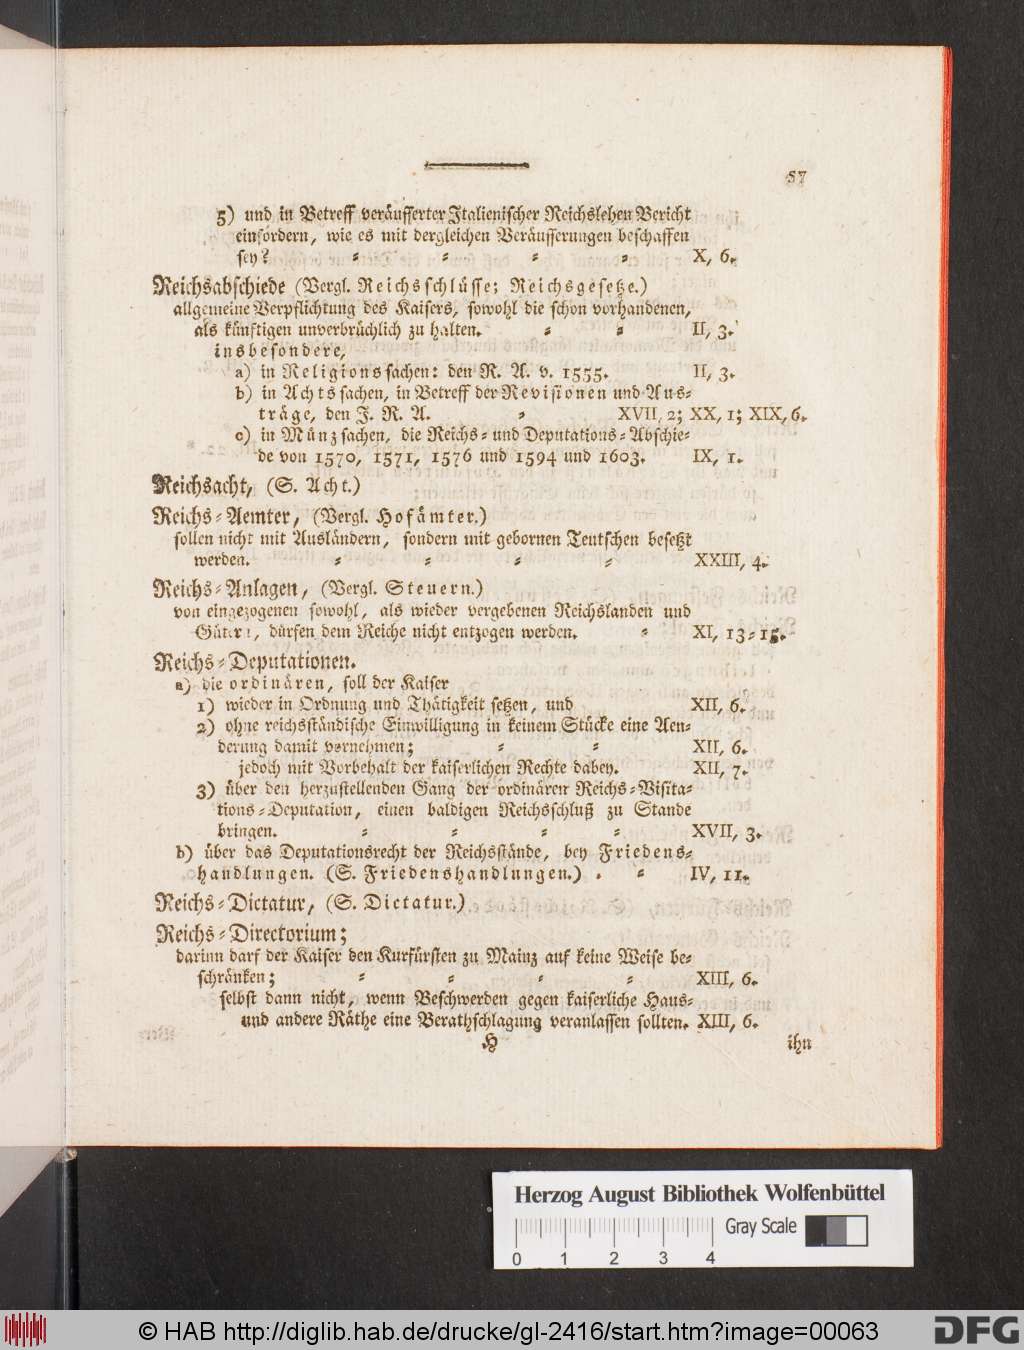 57
5) und in Betreff veräusserter Italienischer Reichslehen Bericht
einfordern, wie es mit dergleichen Veräusserungen beschaffen
sey? = = = = X, 6.
Reichsabschiede (Vergl. Reichsschlüsse; Reichsgesetze.)
allgemeine Verpflichtung des Kaisers, sowohl die schon vorhandenen,
als künftigen unverbrüchlich zu halten. = = II, 3.
insbesondere,
a) in Religionssachen: den R. A. v. 1555. II, 3.
b) in Achtssachen, in Betreff der Revisionen und Aus=
träge, den J. R. A. = XVII, 2; XX, 1; XIX, 6.
c) in Münzsachen, die Reichs= und Deputations=Abschie=
de von 1570, 1571, 1576 und 1594 und 1603. IX, 1.
Reichsacht, (S. Acht.)
Reichs=Aemter, (Vergl. Hofämter.)
sollen nicht mit Ausländern, sondern mit gebornen Teutschen besetzt
werden. = = = = XXIII, 4.
Reichs=Anlagen, (Vergl. Steuern.)
von eingezogenen sowohl, als wieder vergebenen Reichslanden und
Gütern, dürfen dem Reiche nicht entzogen werden. = XI, 13=15.
Reichs=Deputationen.
a) die ordinären, soll der Kaiser
1) wieder in Ordnung und Thätigkeit setzen, und XII, 6.
2) ohne reichsständische Einwilligung in keinem Stücke eine Aen=
derung damit vornehmen; = = XII, 6.
jedoch mit Vorbehalt der kaiserlichen Rechte dabey. XII, 7.
3) über den herzustellenden Gang der ordinären Reichs=Visita=
tions=Deputation, einen baldigen Reichsschluß zu Stande
bringen. = = = = XVII, 3.
b) über das Deputationsrecht der Reichsstände, bey Friedens=
handlungen. (S. Friedenshandlungen.) . = IV, 11.
Reichs=Dictatur, (S. Dictatur.)
Reichs=Directorium;
darinn darf der Kaiser den Kurfürsten zu Mainz auf keine Weise be=
schränken; = = = = XIII, 6.
selbst dann nicht, wenn Beschwerden gegen kaiserliche Haus=
und andere Räthe eine Berathschlagung veranlassen sollten. XIII, 6.
H ihn
Herzog August Bibliothek Wolfenbüttel
Gray Scale
0 1 2 3 4
© HAB http://diglib.hab.de/drucke/gl-2416/start.htm?image=00063
DFG